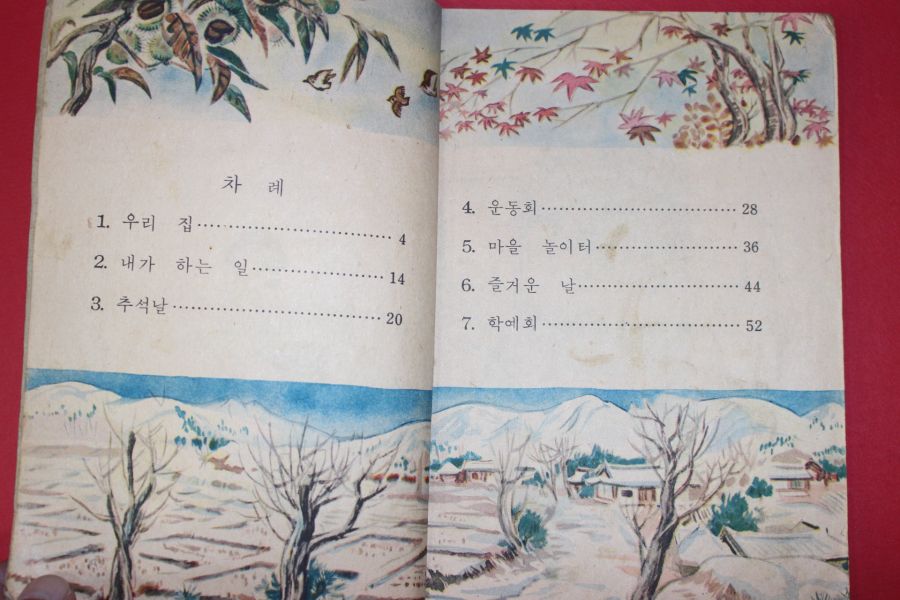 차 례
1. 우리 집 ………………………… 4
2. 내가 하는 일 ………………… 14
3. 추석날 ………………………… 20
4. 운동회 ………………………… 28
5. 마을 놀이터 ………………… 36
6. 즐거운 날 …………………… 44
7. 학예회 ………………………… 52